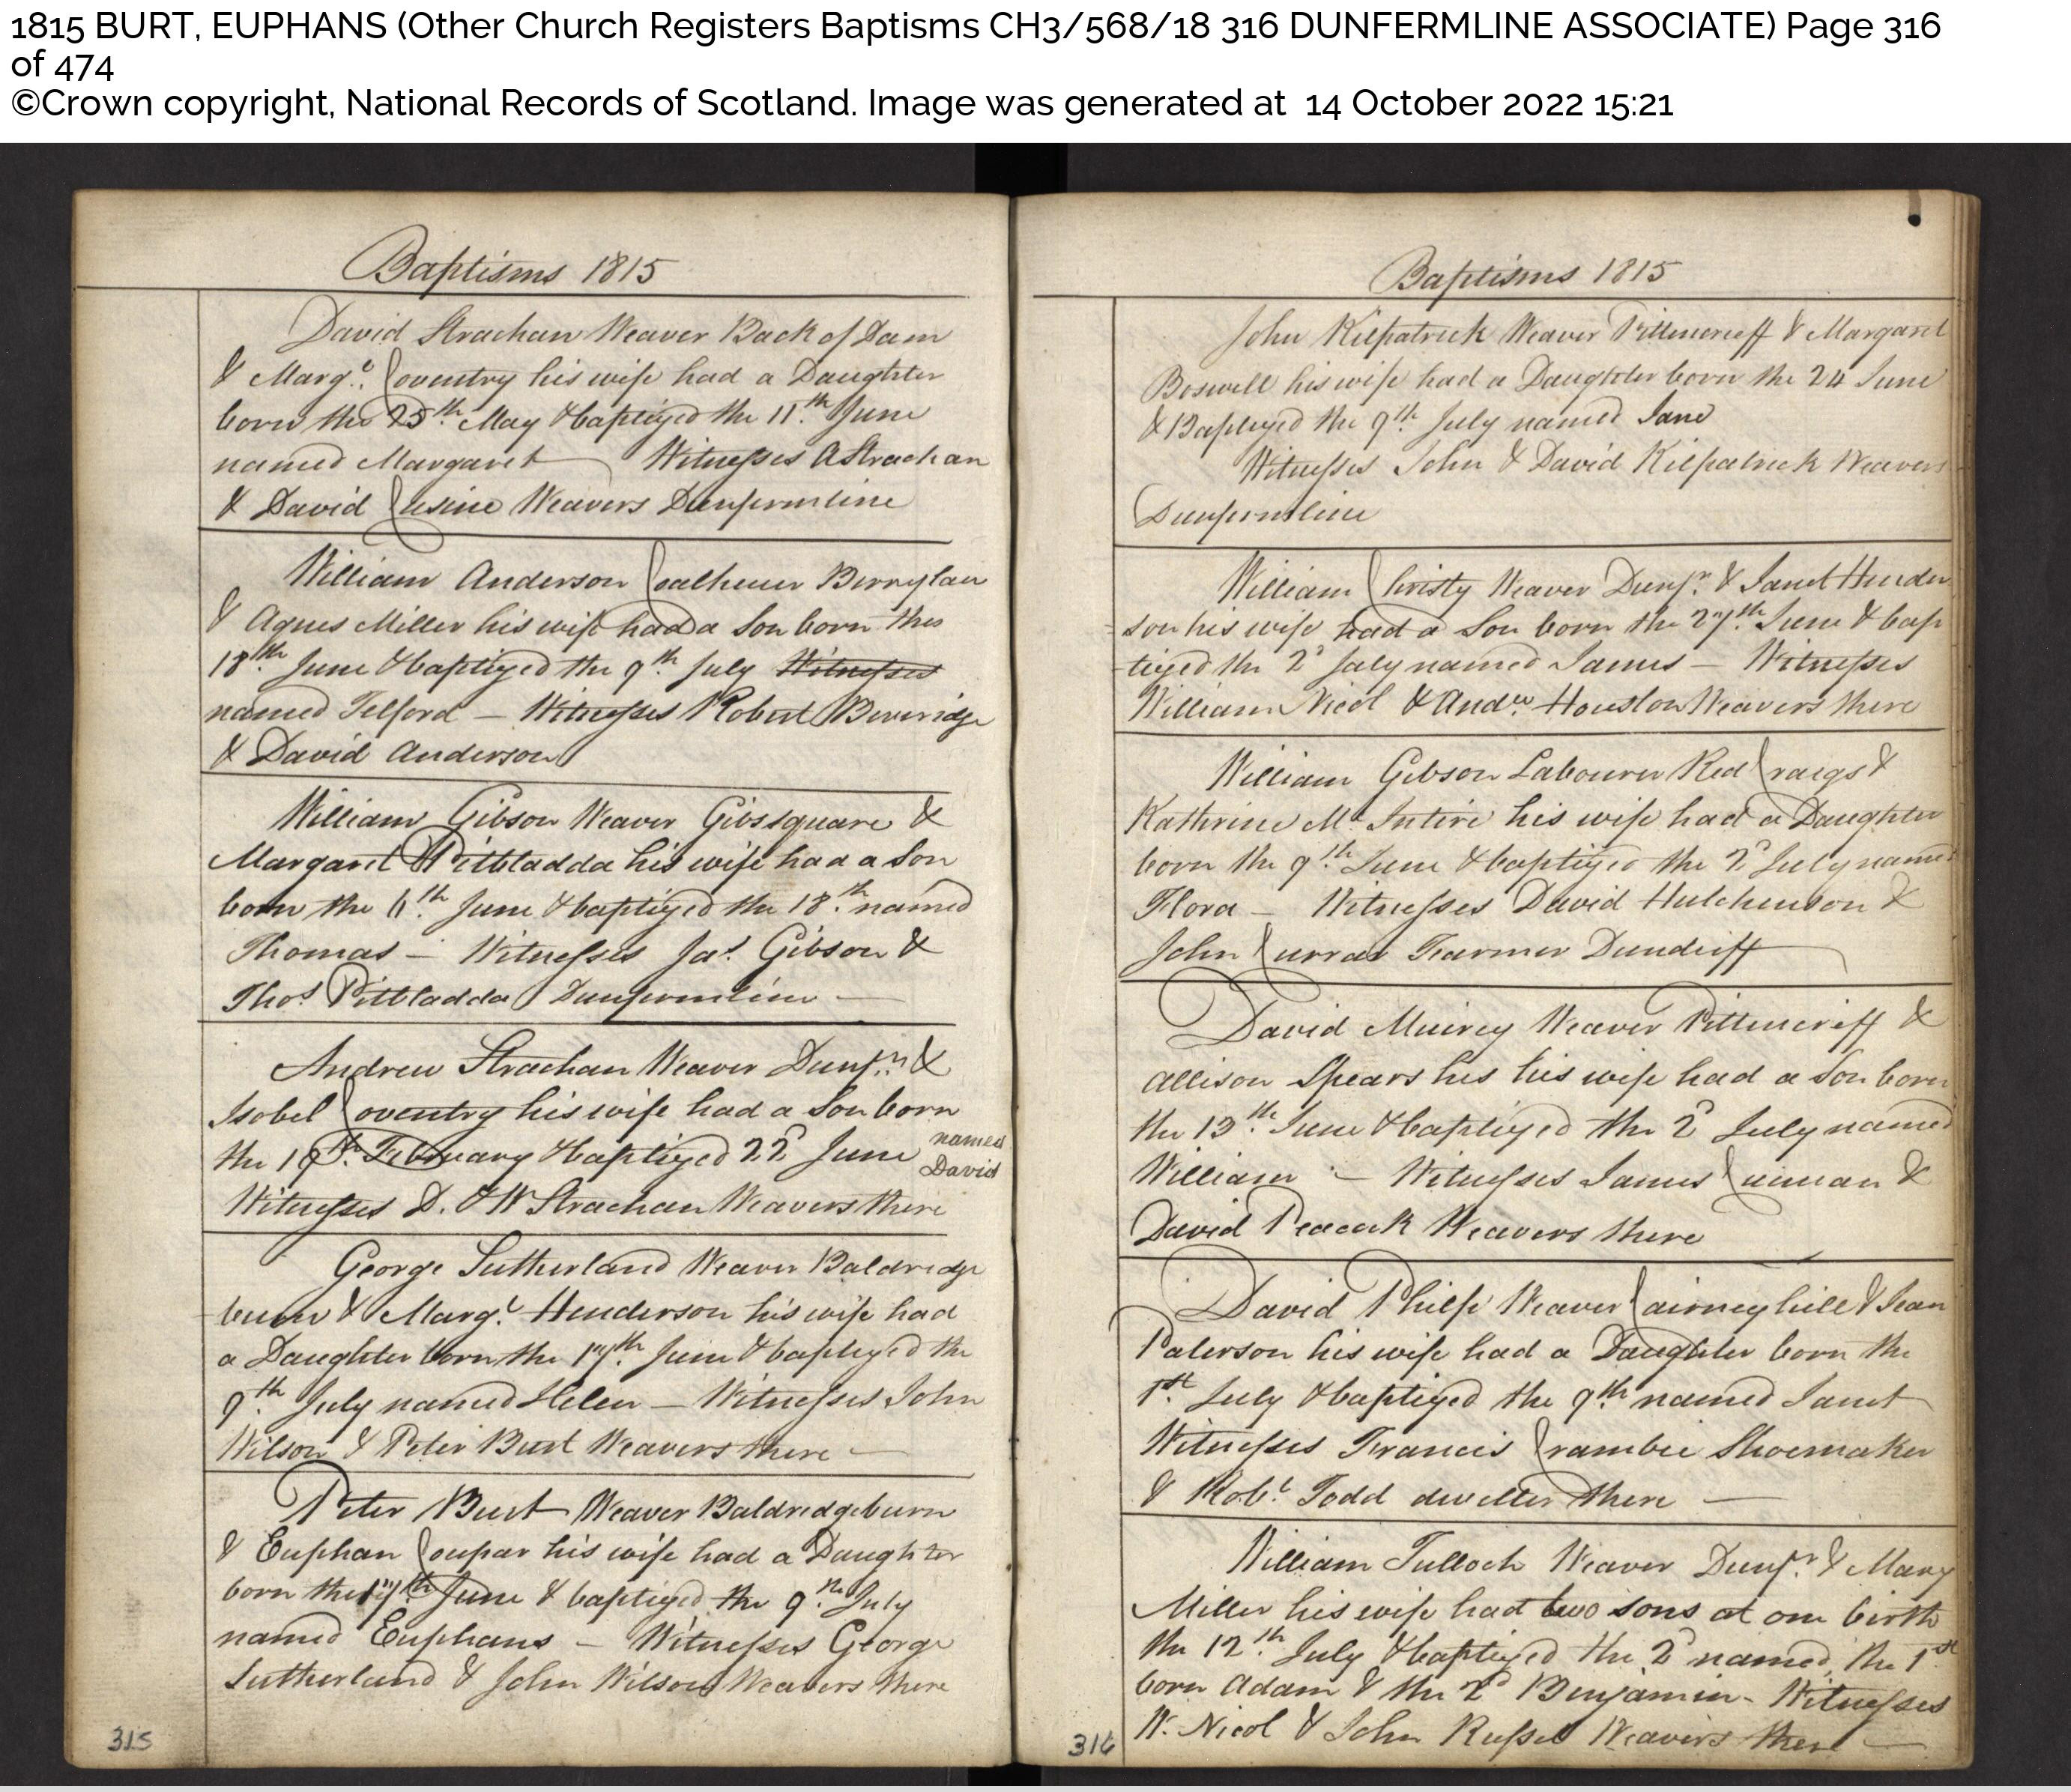 1815 BURT, EUPHANS (Other Church Registers Baptisms CH3/568/18 316 DUNFERMLINE ASSOCIATE) Page 316
of 474
©Crown copyright, National Records of Scotland. Image was generated at 14 October 2022 15:21
Baptisms 1815
David Strachan Weaver Back of Dam
& Margt. Coventry his wife had a Daughter
born the 25th. May & baptized the 11th. June
named Margaret Witnesses A Strachan
& David Cusine Weavers Dunfermline
William Anderson Coalhewer Berrylaw
& Agnes Miller his wife had a Son born the
18th. June & baptized the 9th. July Witnesses
named Telford — Witnesses Robert Beveridge
& David Anderson
William Gibson Weaver Gibssquare &
Margaret Pitbladda his wife had a Son
born the 11th. June & baptized the 18th. named
Thomas — Witnesses Jas. Gibson &
Thos Pitbladda Dunfermline —
Andrew Strachan Weaver Dunfn. &
Isobel Coventry his wife had a Son born
the 18th. February & baptized 22d June named David
Witnesses D. & W Strachan Weavers there
George Sutherland Weaver Baldridge
burn & Margt. Henderson his wife had
a Daughter born the 17th. June & baptized the
9th. July named Helen — Witnesses John
Wilson & Peter Burt Weavers there —
Peter Burt Weaver Baldridgeburn
& Euphan Coupar his wife had a Daughter
born the 17th June & baptized the 9th. July
named Euphans — Witnesses George
Sutherland & John Wilson Weavers there
315
Baptisms 1815
John Kilpatrick Weaver Pittencrieff & Margaret
Boswell his wife had a Daughter born the 24 June
& Baptized the 9th. July named Jane
Witnesses John & David Kilpatrick Weavers
Dunfermline
William Christy Weaver Dunfn. & Janet Hender
son his wife had a Son born the 27th. June & bap
tized the 2d July named James — Witnesses
William Nicol & Andw. Houston Weavers there
William Gibson Labourer Red Craigs &
Kathrine Mc Intire his wife had a Daughter
born the 9th. June & baptized the 2d July named
Flora — Witnesses David Hutchenson &
John Currar Farmer Dunduff
David Muirey Weaver Pittencriff &
Allison Spears his his wife had a Son born
the 13th. June & baptized the 2d July named
William — Witnesses James Cuinan &
David Peacock Weavers there
David Philp Weaver Cairneyhill & Jean
Paterson his wife had a Daughter born the
1st. July & baptized the 9th. named Janet
Witnesses Francis Crambie Shoemaker
& Robt. Todd dweller there —
William Tulloch Weaver Dunfn. & Mary
Miller his wife had two sons at one birth
the 12th. July & baptized the 2d named, the 1st
born Adam & the 2d Benjamin - Witnesses
W. Nicol & John Russel Weavers there —
316